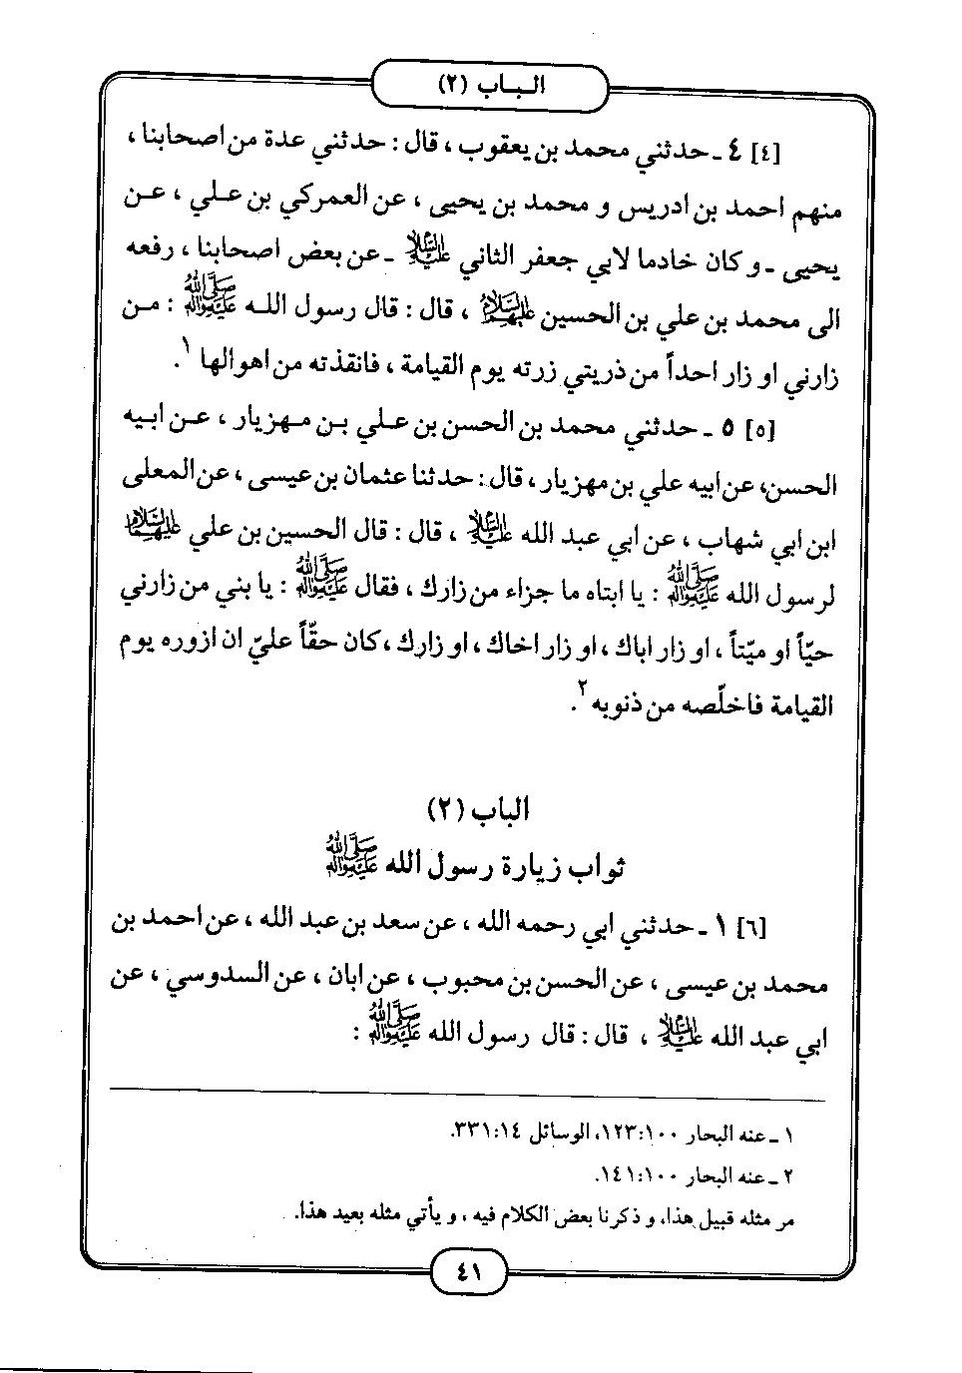 الـبـاب (٢)
[٤] ٤ ـ حدثني محمد بن يعقوب ، قال : حدثني عدة من اصحابنا ،
منهم احمد بن ادريس و محمد بن يحيى ، عن العمركي بن عـلي ، عـن
يحيى ـ و كان خادما لابي جعفر الثاني عليه السلام ـ عن بعض اصحابنا ، رفعه
الى محمد بن علي بن الحسين عليهم السلام ، قال : قال رسول اللـه صلى الله عليه وآله : مـن
زارني او زار احداً من ذريتي زرته يوم القيامة ، فانقذته من اهوالها ١.
[٥] ٥ ـ حدثني محمد بن الحسن بن عـلي بـن مـهزيار ، عـن ابـيه
الحسن، عن ابيه علي بن مهزيار ، قال : حدثنا عثمان بن عيسى ، عن المعلى
ابن ابي شهاب ، عن ابي عبد الله عليه السلام ، قال : قال الحسين بن علي عليهما السلام
لرسول الله صلى الله عليه وآله : يا ابتاه ما جزاء من زارك ، فقال صلى الله عليه وآله : يا بني من زارني
حيّاً او ميّتاً ، او زار اباك ، او زار اخاك ، او زارك ، كان حقّاً عليّ ان ازوره يوم
القيامة فاخلّصه من ذنوبه ٢.
الباب (٢)
ثواب زيارة رسول الله صلى الله عليه وآله
[٦] ١ ـ حدثني ابي رحمه الله ، عن سعد بن عبد الله ، عن احمد بن
محمد بن عيسى ، عن الحسن بن محبوب ، عن ابان ، عن السدوسي ، عن
ابي عبد الله عليه السلام ، قال : قال رسول الله صلى الله عليه وآله :
١ ـ عنه البحار ١٠٠:١٢٣، الوسائل ١٤:٣٣١.
٢ ـ عنه البحار ١٠٠:١٤١.
مر مثله قبيل هذا، و ذكرنا بعض الكلام فيه ، و يأتي مثله بعيد هذا.
٤١